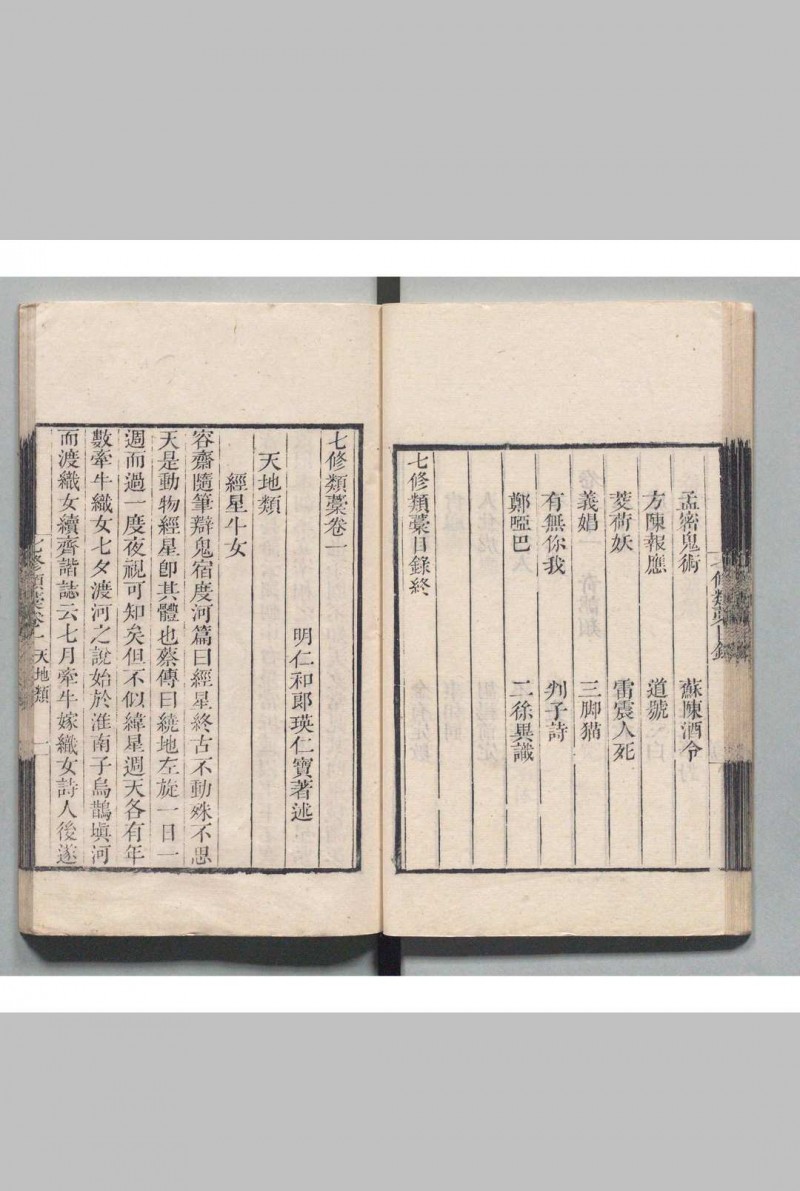 孟密鬼術 蘇陳酒令
方陳報應 道號
菱荷妖 雷震人死
義娼 三脚猫
有無你我 判子詩
鄭啞巴 二徐異識
七修類藁目錄終
七修類藁卷一
明仁和郎瑛仁寶著述
天地類
經星牛女
容齋隨筆辯鬼宿度河篇曰經星終古不動殊不思
天是動物經星卽其體也蔡傳曰繞地左旋一日一
週而過一度夜視可知矣但不似緯星週天各有年
數牽牛織女七夕渡河之說始於淮南子烏鵲塡河
而渡織女續齊諧誌云七月牽牛嫁織女詩人後遂
七修類藁卷一 天地類 一